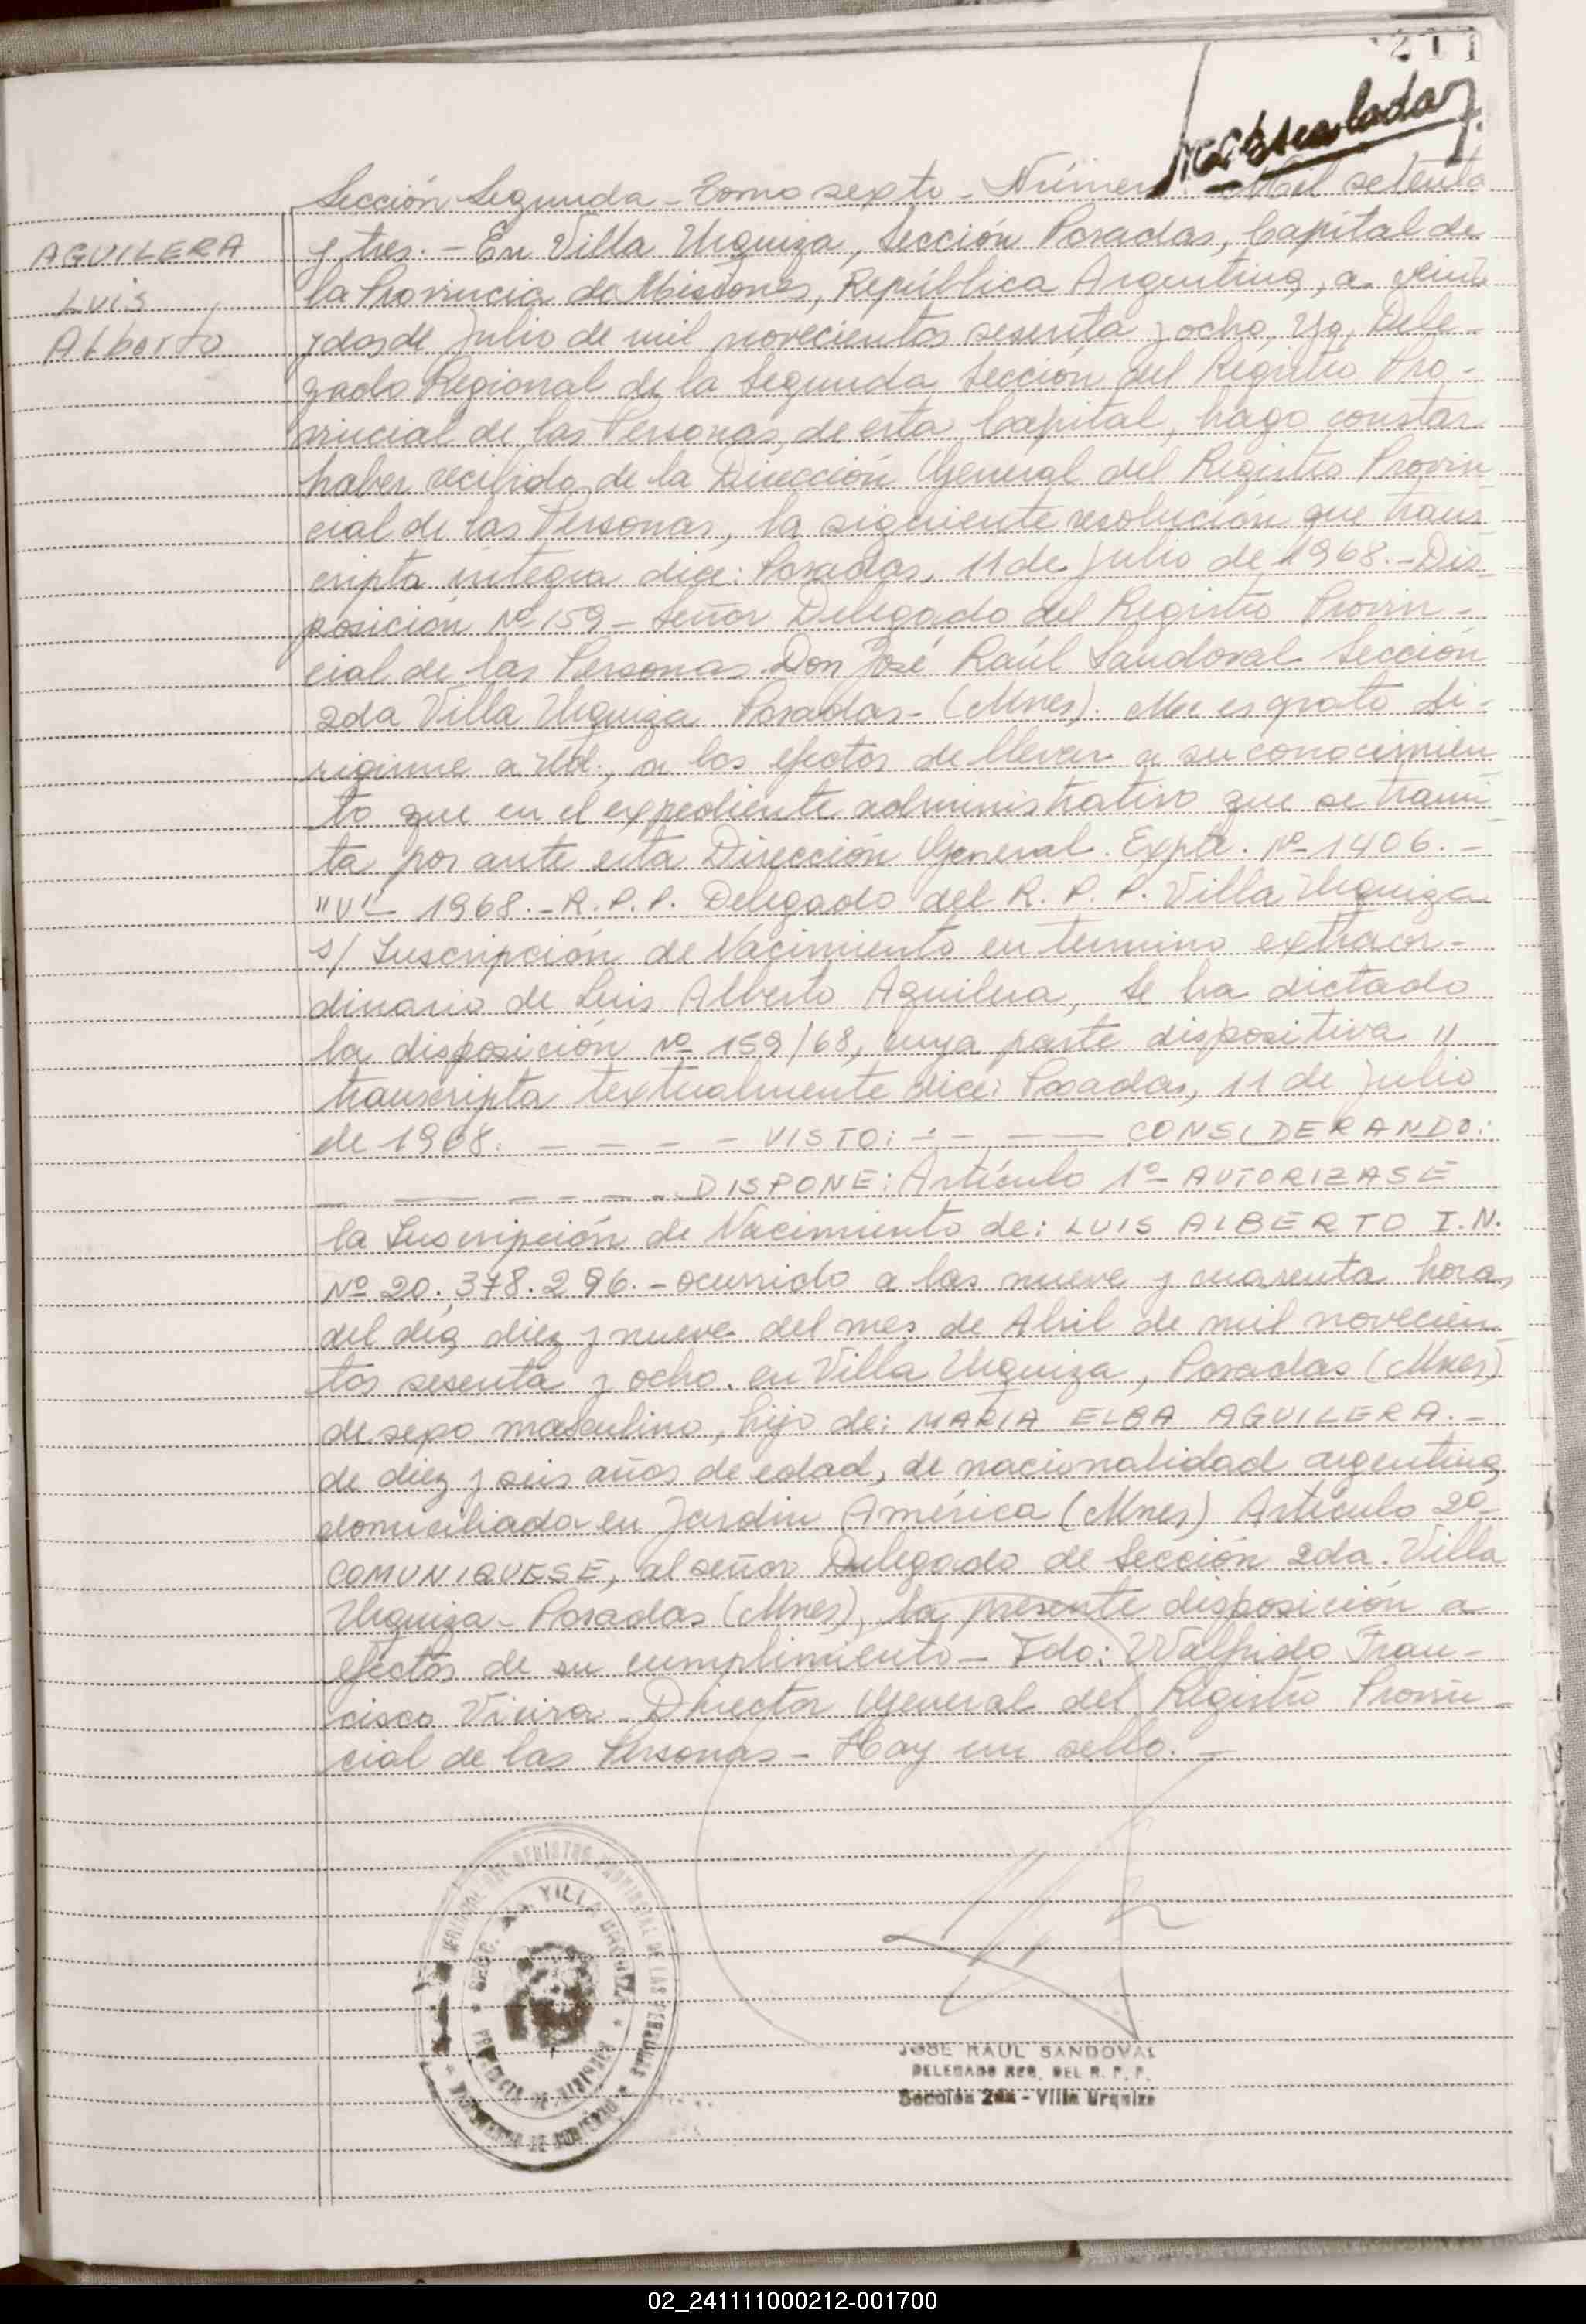 211
Sección Segunda - Tomo sexto - Número: Mil setenta
y tres. - En Villa Urquiza, Sección Posadas, Capital de
la Provincia de Misiones, República Argentina, a veinti
y dos de julio de mil novecientos sesenta y ocho, Yo, Dele-
gado Regional de la Segunda Sección del Registro Pro-
vincial de las Personas, de esta Capital, hago constar
haber recibido de la Dirección General del Registro Provin
cial de las Personas, la siguiente resolución que trans
cripta integra dice: Posadas, 11 de julio de 1968. - Dis-
posición Nº 159 - Señor Delegado del Registro Provin-
cial de las Personas Don José Raúl Sandoval Sección
2da Villa Urquiza Posadas - (Mnes). Me es grato di-
rigirme a Ud., a los efectos de llevar a su conocimien
to que en el expediente administrativo que se trami
ta por ante esta Dirección General. Expte. Nº 1406. -
"V" - 1968. - R. P. P. Delegado del R. P. P. Villa Urquiza
s/ Suscripción de Nacimiento en termino extraor-
dinario de Luis Alberto Aguilera, Se ha dictado
la disposición Nº 159/68, cuya parte dispositiva "
transcripta textualmente dice: Posadas, 11 de julio
de 1968. - - - - - VISTO: - - - - CONSIDERANDO:
- - - - - - - DISPONE: Artículo 1º - AUTORIZASE
la Suscripción de Nacimiento de: LUIS ALBERTO I.N.
Nº 20.378.296. - ocurrido a las nueve y cuarenta horas
del día diez y nueve del mes de Abril de mil novecien
tos sesenta y ocho. en Villa Urquiza, Posadas (Mnes)
de sexo masculino, hijo de: MARIA ELBA AGUILERA. -
de diez y seis años de edad, de nacionalidad argentina
domiciliada en Jardin América (Mnes) Artículo 2º -
COMUNIQUESE, al señor Delegado de Sección 2da. Villa
Urquiza - Posadas (Mnes), la presente disposición a
efectos de su cumplimiento - Fdo: Walfrido Fran-
cisco Vieira - Director General del Registro Provin
cial de las Personas - Hay un sello. -
AGUILERA
Luis
Alberto
JOSE RAUL SANDOVAL
DELEGADO REG. DEL R. P. P.
Sección 2da - Villa Urquiza
02_241111000212-001700